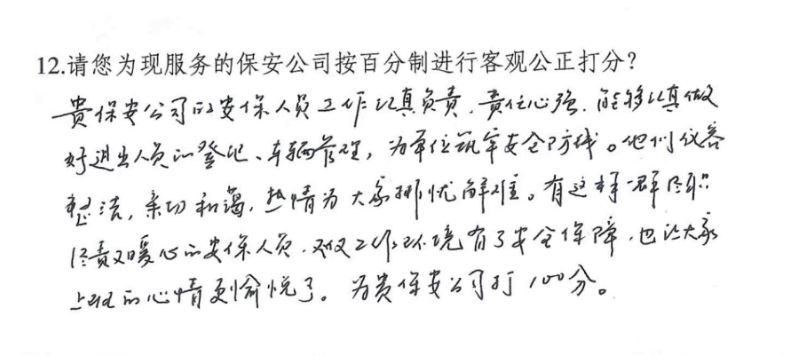 12.请您为现服务的保安公司按百分制进行客观公正打分？
贵保安公司的安保人员工作认真负责，责任心强，能够认真做
好进出人员的登记、车辆管理，为单位筑牢安全防线。他们仪容
整洁，亲切和蔼，热情为大家排忧解难。有这样一群尽职
尽责又暖心的安保人员，不仅工作环境有了安全保障，也让大家
上班的心情更愉悦了。为贵保安公司打100分。